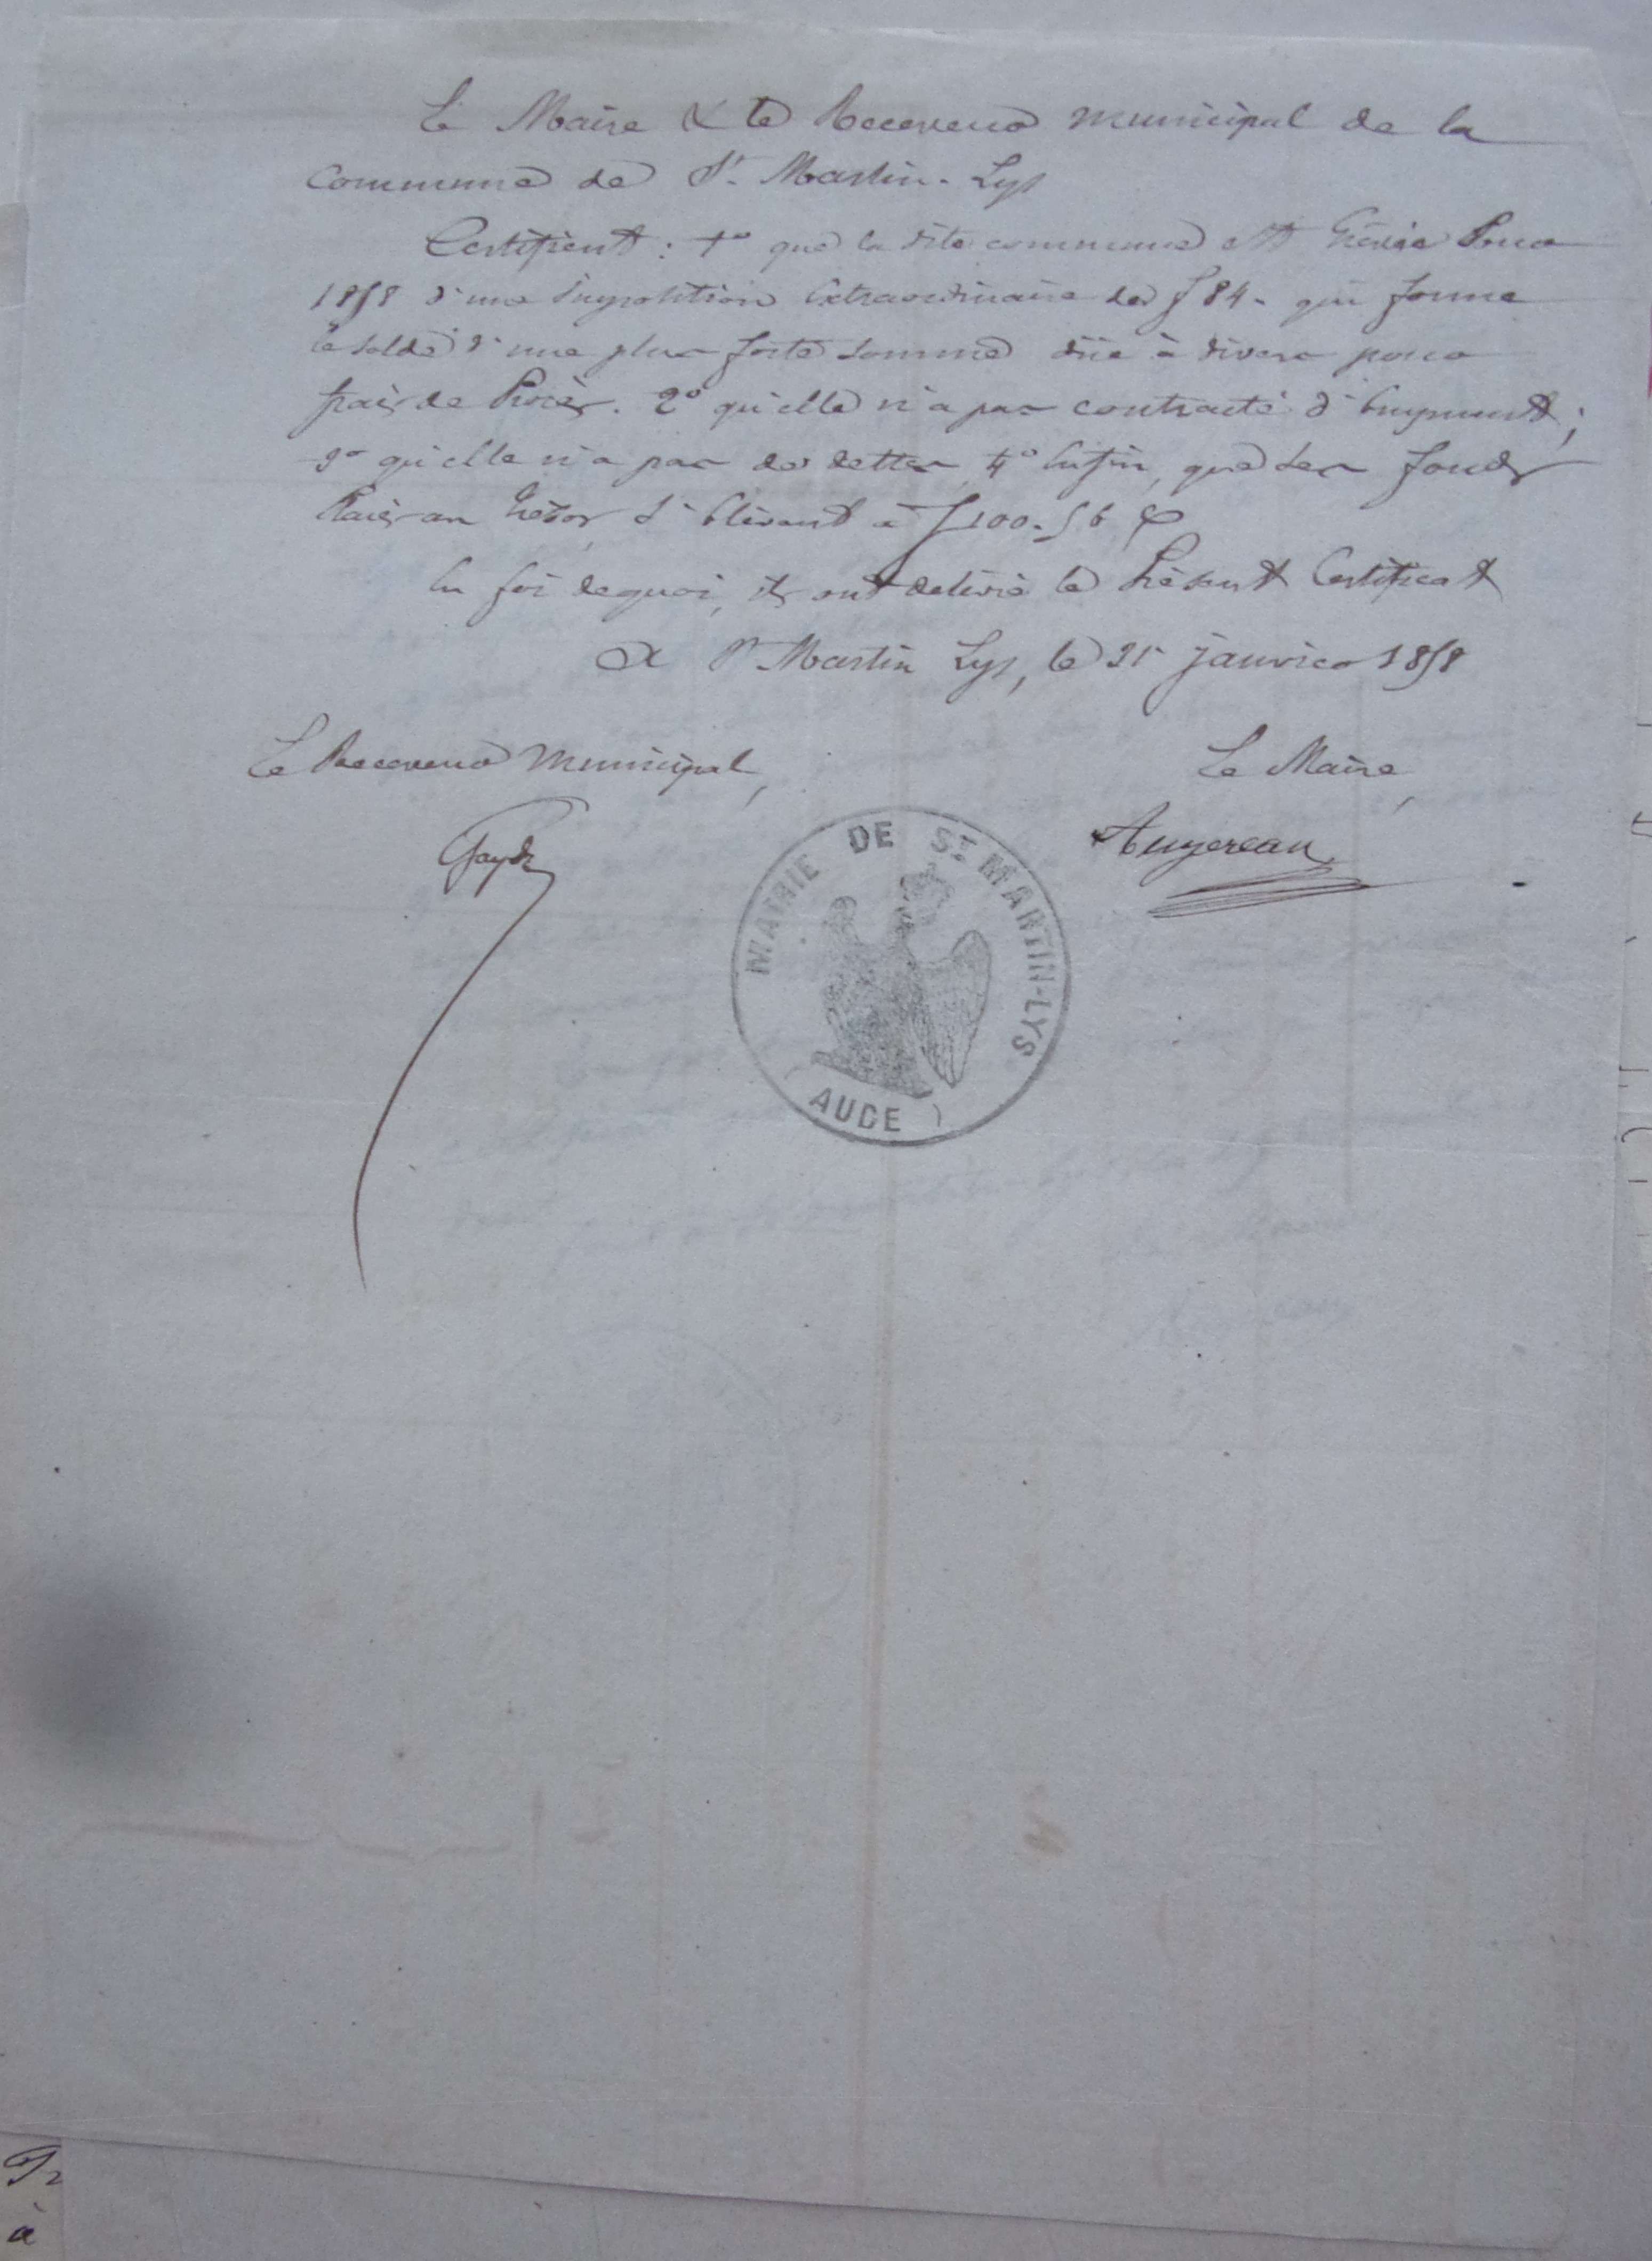 Le Maire & le Receveur municipal de la
Commune de St. Martin-Lys
Certifient : 1° que la dite commune est Grévée Pour
1858 d'une Imposition Extraordinaire de f 84- qui forme
le solde d'une plus forte somme düe à divers pour
frais de Procès. 2° qu'elle n'a pas contracté d'Emprunt ;
3° qu'elle n'a pas de dettes 4° Enfin, que ses fonds
Placés au Trésor s'Elèvent à f 100-56
En foi de quoi, ils ont délivré le Présent Certificat
A St Martin Lys, le 21 janvier 1858
Le Receveur Municipal,
Le Maire,
Augereau
MAIRIE DE ST MARTIN-LYS
(AUDE)
à